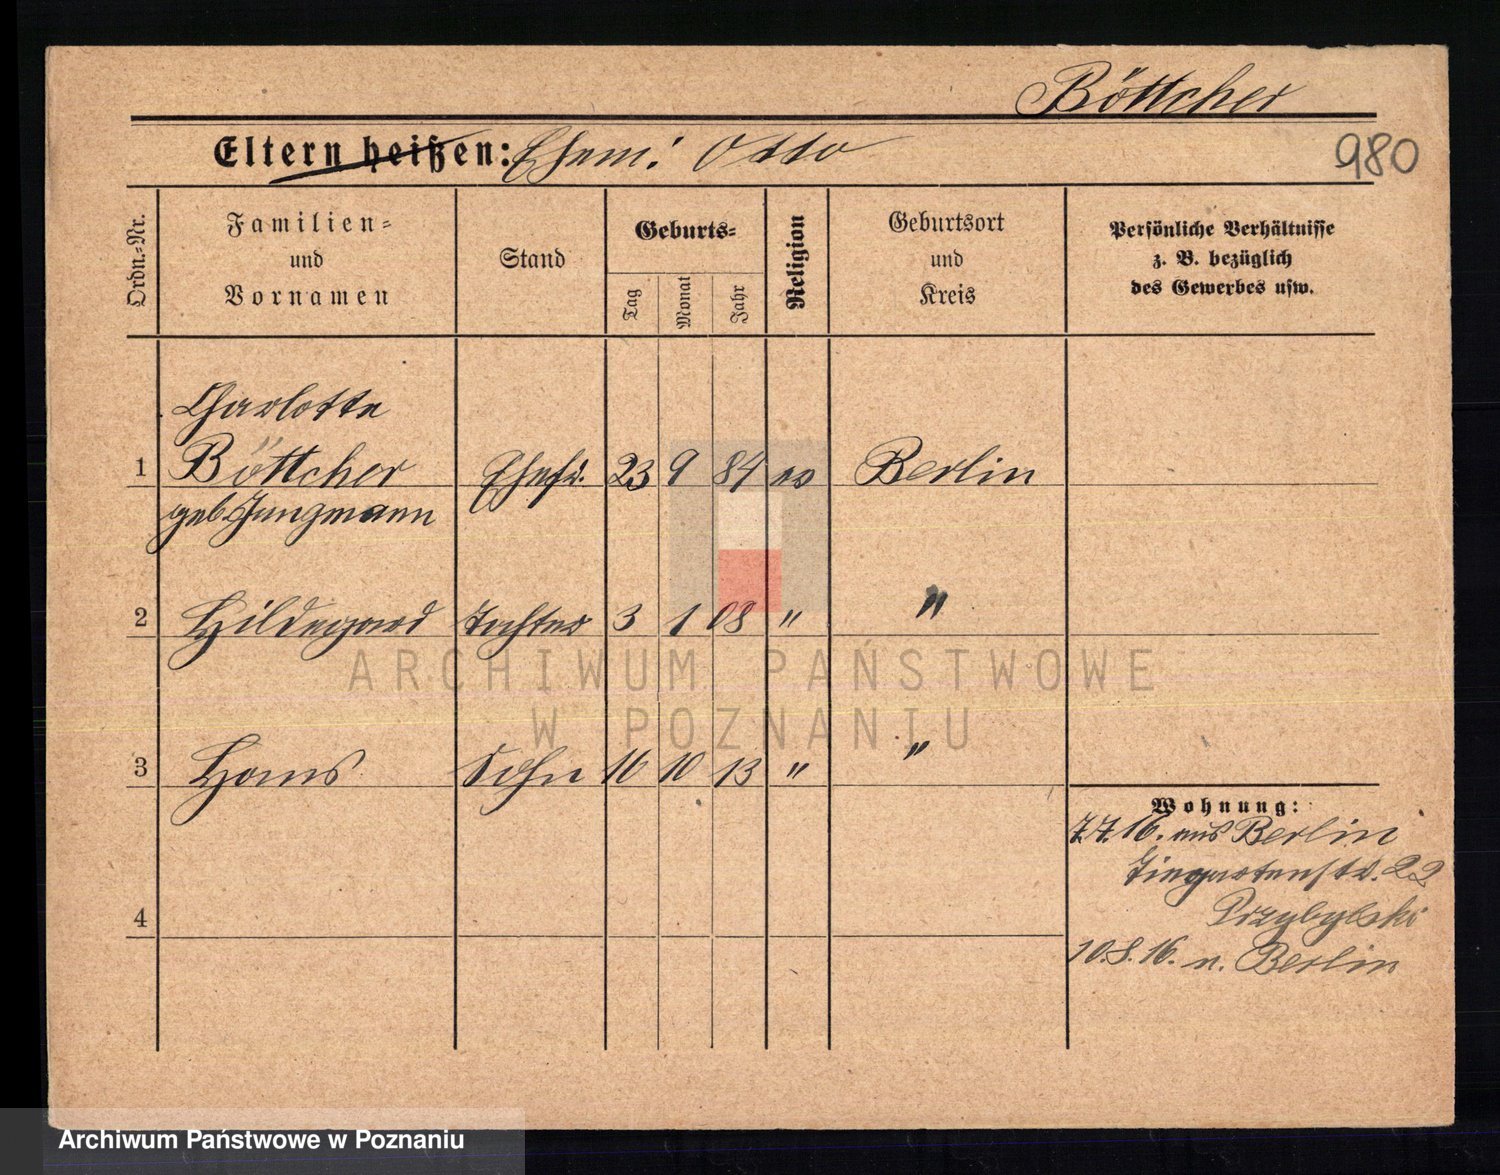 Böttcher
Eltern heißen: Ehem: Otto
980
Ordn.-Nr.
Familien-
und
Vornamen
Stand
Geburts-
Tag
Monat
Jahr
Religion
Geburtsort
und
Kreis
Persönliche Verhältnisse
z. B. bezüglich
des Gewerbes usw.
Charlotte
1 Böttcher Ehefr. 23 9 84 ev Berlin
geb. Jungmann
2 Hildegard Tochter 3 1 08 " "
ARCHIWUM PAŃSTWOWE
W POZNANIU
3 Hans Sohn 16 10 13 " "
Wohnung:
7.7.16. aus Berlin
Tiergartenstr. 22
4
Przybylski
10.8.16. n. Berlin
Archiwum Państwowe w Poznaniu